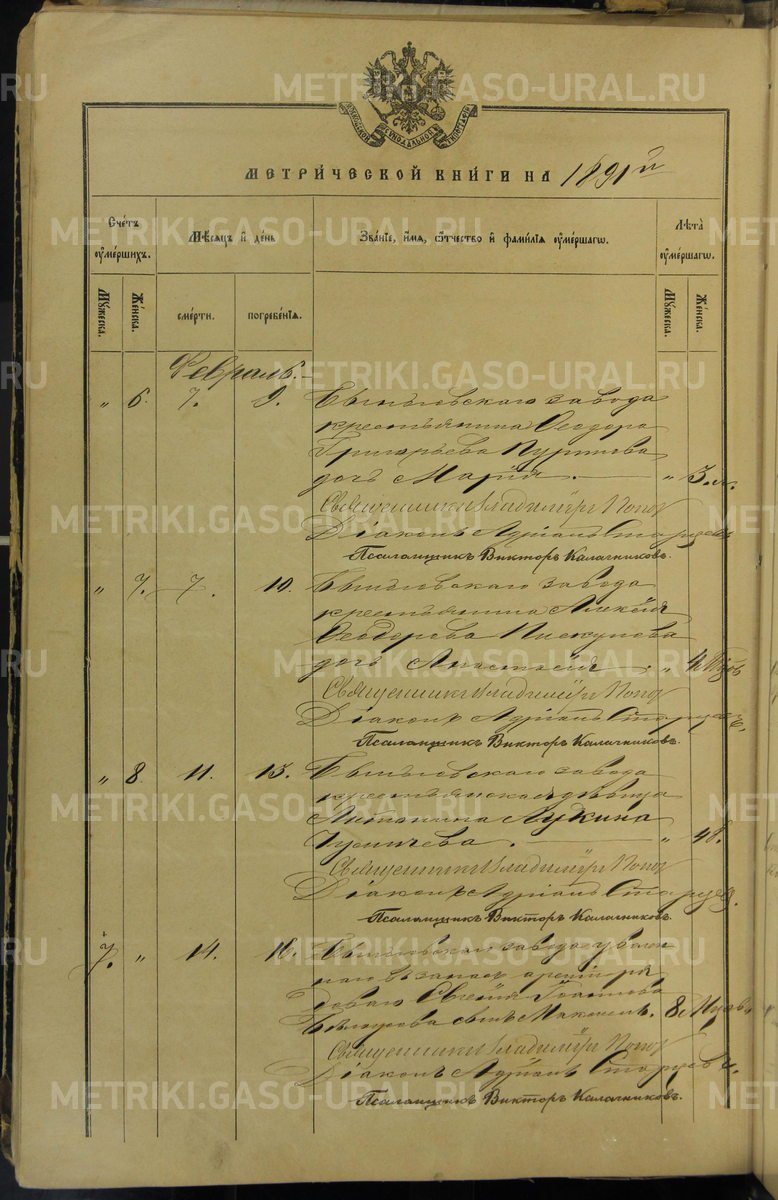 МЕТРИ́ЧЕСКОЙ КНИ́ГИ НА 1891 й
Сче́тъ ᲂу҆ме́ршихъ.
Мѣ́сяцъ и҆ де́нь
Зва́нїе, и҆́мя, ѻ҆́тчество и҆ фами́лїя ᲂу҆ме́ршагѡ.
Лѣ́та ᲂу҆ме́ршагѡ.
Му́жеска.
Же́нска.
сме́рти.
погребе́нїя.
Му́жеска.
Же́нска.
Февраль.
" 6. 7. 9. завода
крестьянина Ѳеодора
Григорьева
дочь Марія. — " 3 м.
Священникъ Владиміръ Попов
Діаконъ Адріанъ Старцевъ
Псаломщикъ Викторъ Калачниковъ.
" 7. 7. 10. завода
крестьянина Алексѣя
Ѳеодорова Пискунова
дочь Анастасія. "
Священникъ Владиміръ Попов
Діаконъ Адріанъ Старцевъ.
Псаломщикъ Викторъ Калачниковъ.
" 8. 11. 13. завода
крестьянская дѣвица
Лукина
— " 48.
Священникъ Владиміръ Попов
Діаконъ Адріанъ Старцевъ.
Псаломщикъ Викторъ Калачниковъ.
7. " 14. 16. завода уволен
наго въ запасъ арміи ря
доваго Евгенія Іоаннова
сынъ Максимъ.
Священникъ Владиміръ Попов
Діаконъ Адріанъ Старцевъ.
Псаломщикъ Викторъ Калачниковъ.
METRIKI.GASO-URAL.RU